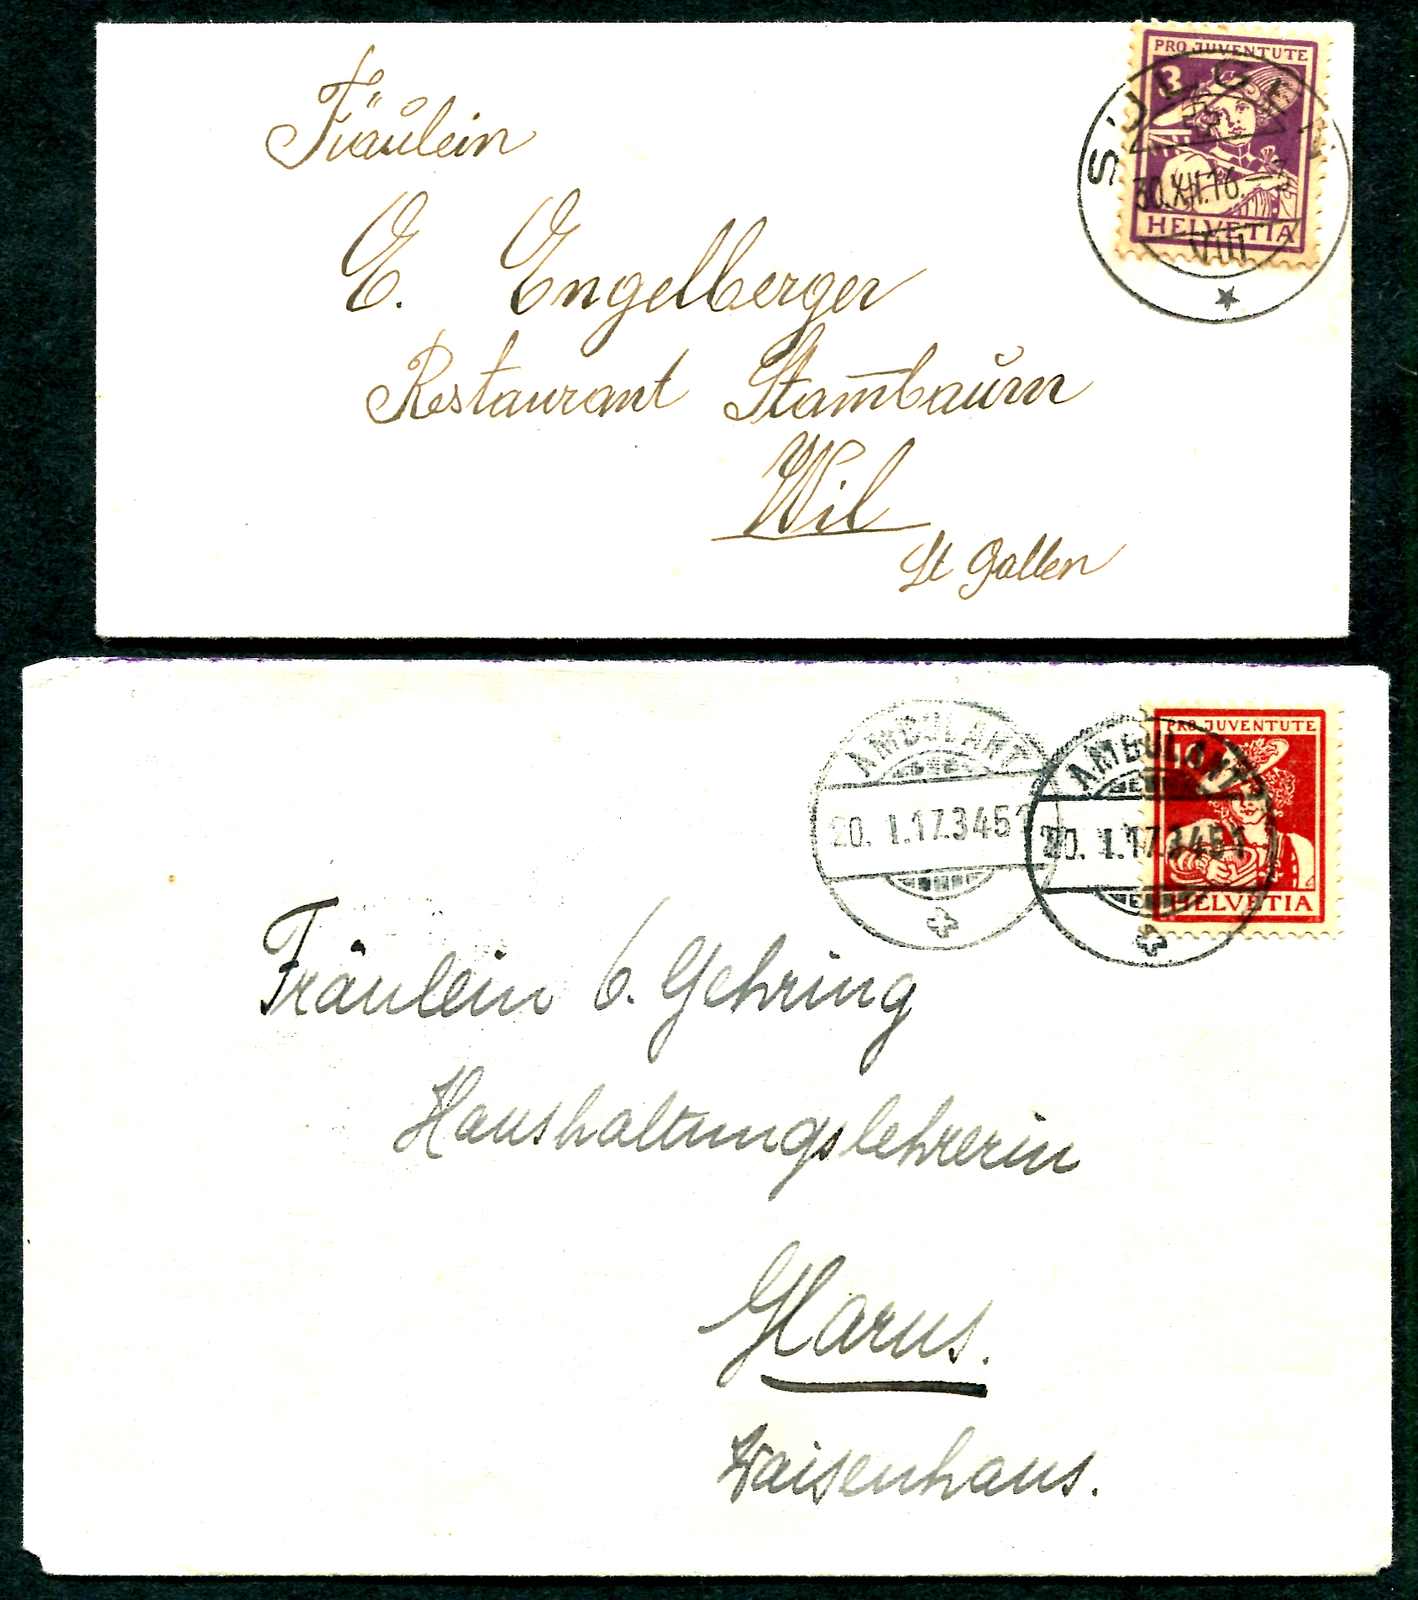 PRO JUVENTUTE
3
SULGEN
30.XII.16.
VIII
HELVETIA
Fräulein
E. Engelberger
Restaurant Stambaum
Wil
St Gallen
PRO JUVENTUTE
10
AMBULANT
20. I.17.3451
AMBULANT
20. I.17.3451
HELVETIA
Fräulein C. Gehring
Haushaltungslehrerin
Glarus.
Waisenhaus.